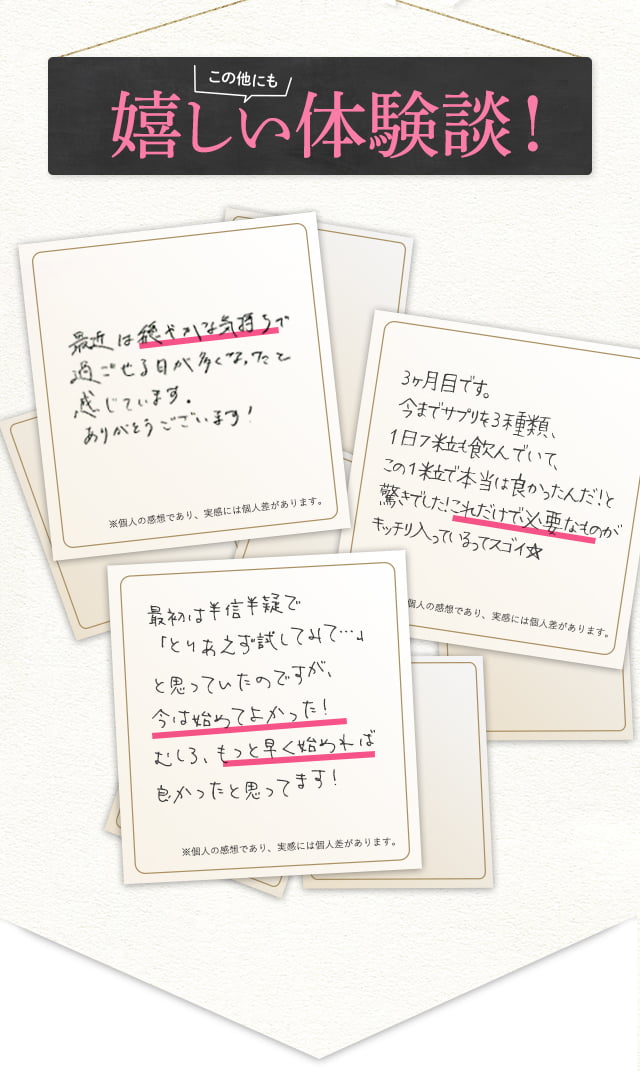 この他にも
嬉しい体験談！
最近は穏やかな気持ちで
過ごせる日が多くなったと
感じています。
ありがとうございます！
※個人の感想であり、実感には個人差があります。
3ヶ月目です。
今までサプリを3種類、
1日7粒も飲んでいて、
この1粒で本当は良かったんだ！と
驚きでした！これだけで必要なものが
キッチリ入っているってスゴイ☆
個人の感想であり、実感には個人差があります。
最初は半信半疑で
「とりあえず試してみて…」
と思っていたのですが、
今は始めてよかった！
むしろ、もっと早く始めれば
良かったと思ってます！
※個人の感想であり、実感には個人差があります。